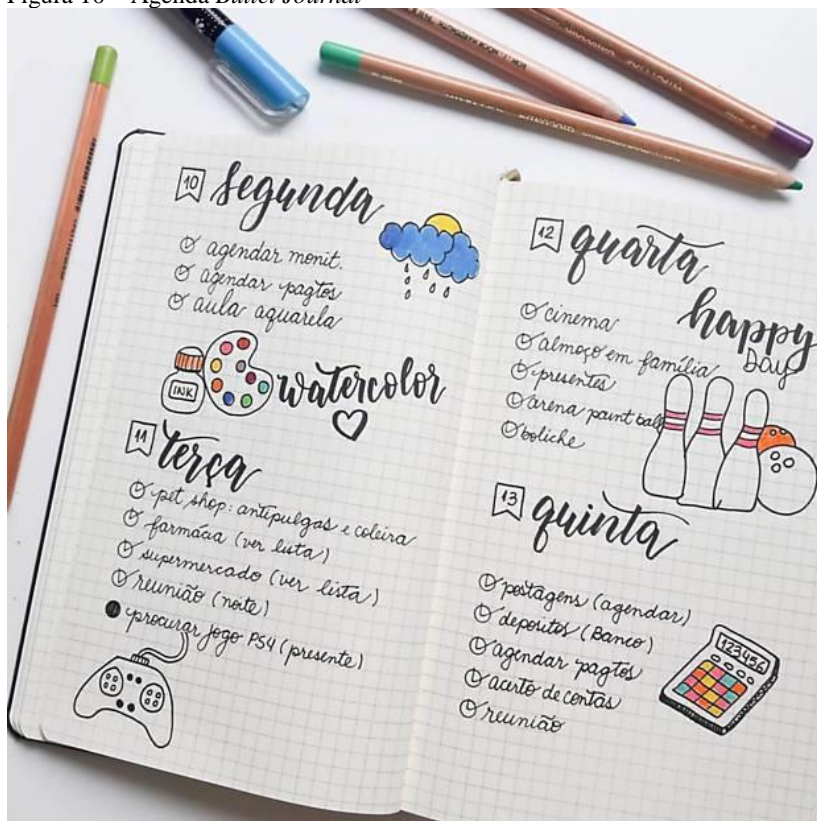 Figura 10 – Agenda Bullet Journal
10 segunda
agendar monit.
agendar pagtos
aula aquarela
INK
watercolor
11 terça
pet shop: antipulgas e coleira
farmácia (ver lista)
supermercado (ver lista)
reunião (noite)
procurar jogo PS4 (presente)
12 quarta
happy
Day
cinema
almoço em família
presentes
arena paint ball
boliche
13 quinta
postagens (agendar)
depositos (Banco)
agendar pagtos
acerto de contas
reunião
123456